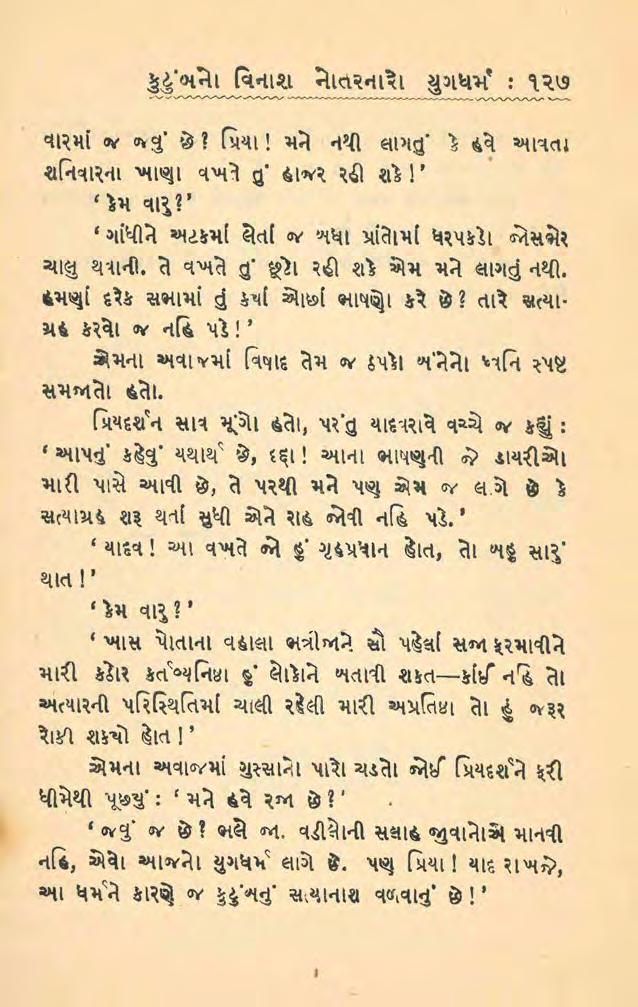 કુટુંબનો વિનાશ નોતરનારો યુગધર્મ : ૧૨૭
વારમાં જ જવું છે? પ્રિયા! મને નથી લાગતું કે હવે આવતા
શનિવારના ખાણા વખતે તું હાજર રહી શકે!’
‘કેમ વારુ?’
‘ગાંધીને અટકમાં લેતાં જ બધા પ્રાંતોમાં ધરપકડો જોસભેર
ચાલુ થવાની. તે વખતે તું છૂટો રહી શકે એમ મને લાગતું નથી.
હમણાં દરેક સભામાં તું કયાં ઓછાં ભાષણો કરે છે? તારે સત્યા-
ગ્રહ કરવો જ નહિ પડે!’
એમના અવાજમાં વિષાદ તેમ જ ઠપકો બંનેનો ધ્વનિ સ્પષ્ટ
સમજાતો હતો.
પ્રિયદર્શન સાવ મૂંગો હતો, પરંતુ યાદવરાવે વચ્ચે જ કહ્યું :
‘આપનું કહેવું યથાર્થ છે, દદ્દા! આના ભાષણની જે ડાયરીઓ
મારી પાસે આવી છે, તે પરથી મને પણ એમ જ લાગે છે કે
સત્યાગ્રહ શરૂ થતાં સુધી એને રાહ જોવી નહિ પડે.’
‘યાદવ! આ વખતે જો હું ગૃહપ્રધાન હોત, તો બહુ સારું
થાત!’
‘કેમ વારુ?’
‘ખાસ પોતાના વહાલા ભત્રીજાને સૌ પહેલાં સજા ફરમાવીને
મારી કઠોર કર્તવ્યનિષ્ઠા હું લોકોને બતાવી શકત—કાંઈ નહિ તો
અત્યારની પરિસ્થિતિમાં ચાલી રહેલી મારી અપ્રતિષ્ઠા તો હું જરૂર
રોકી શક્યો હોત!’
એમના અવાજમાં ગુસ્સાનો પારો ચડતો જોઈ પ્રિયદર્શને ફરી
ધીમેથી પૂછ્યું : ‘મને હવે રજા છે?’
‘જવું જ છે? ભલે જા. વડીલોની સલાહ જુવાનોએ માનવી
નહિ, એવો આજનો યુગધર્મ લાગે છે. પણ પ્રિયા! યાદ રાખજે,
આ ધર્મને કારણે જ કુટુંબનું સત્યાનાશ વળવાનું છે!’